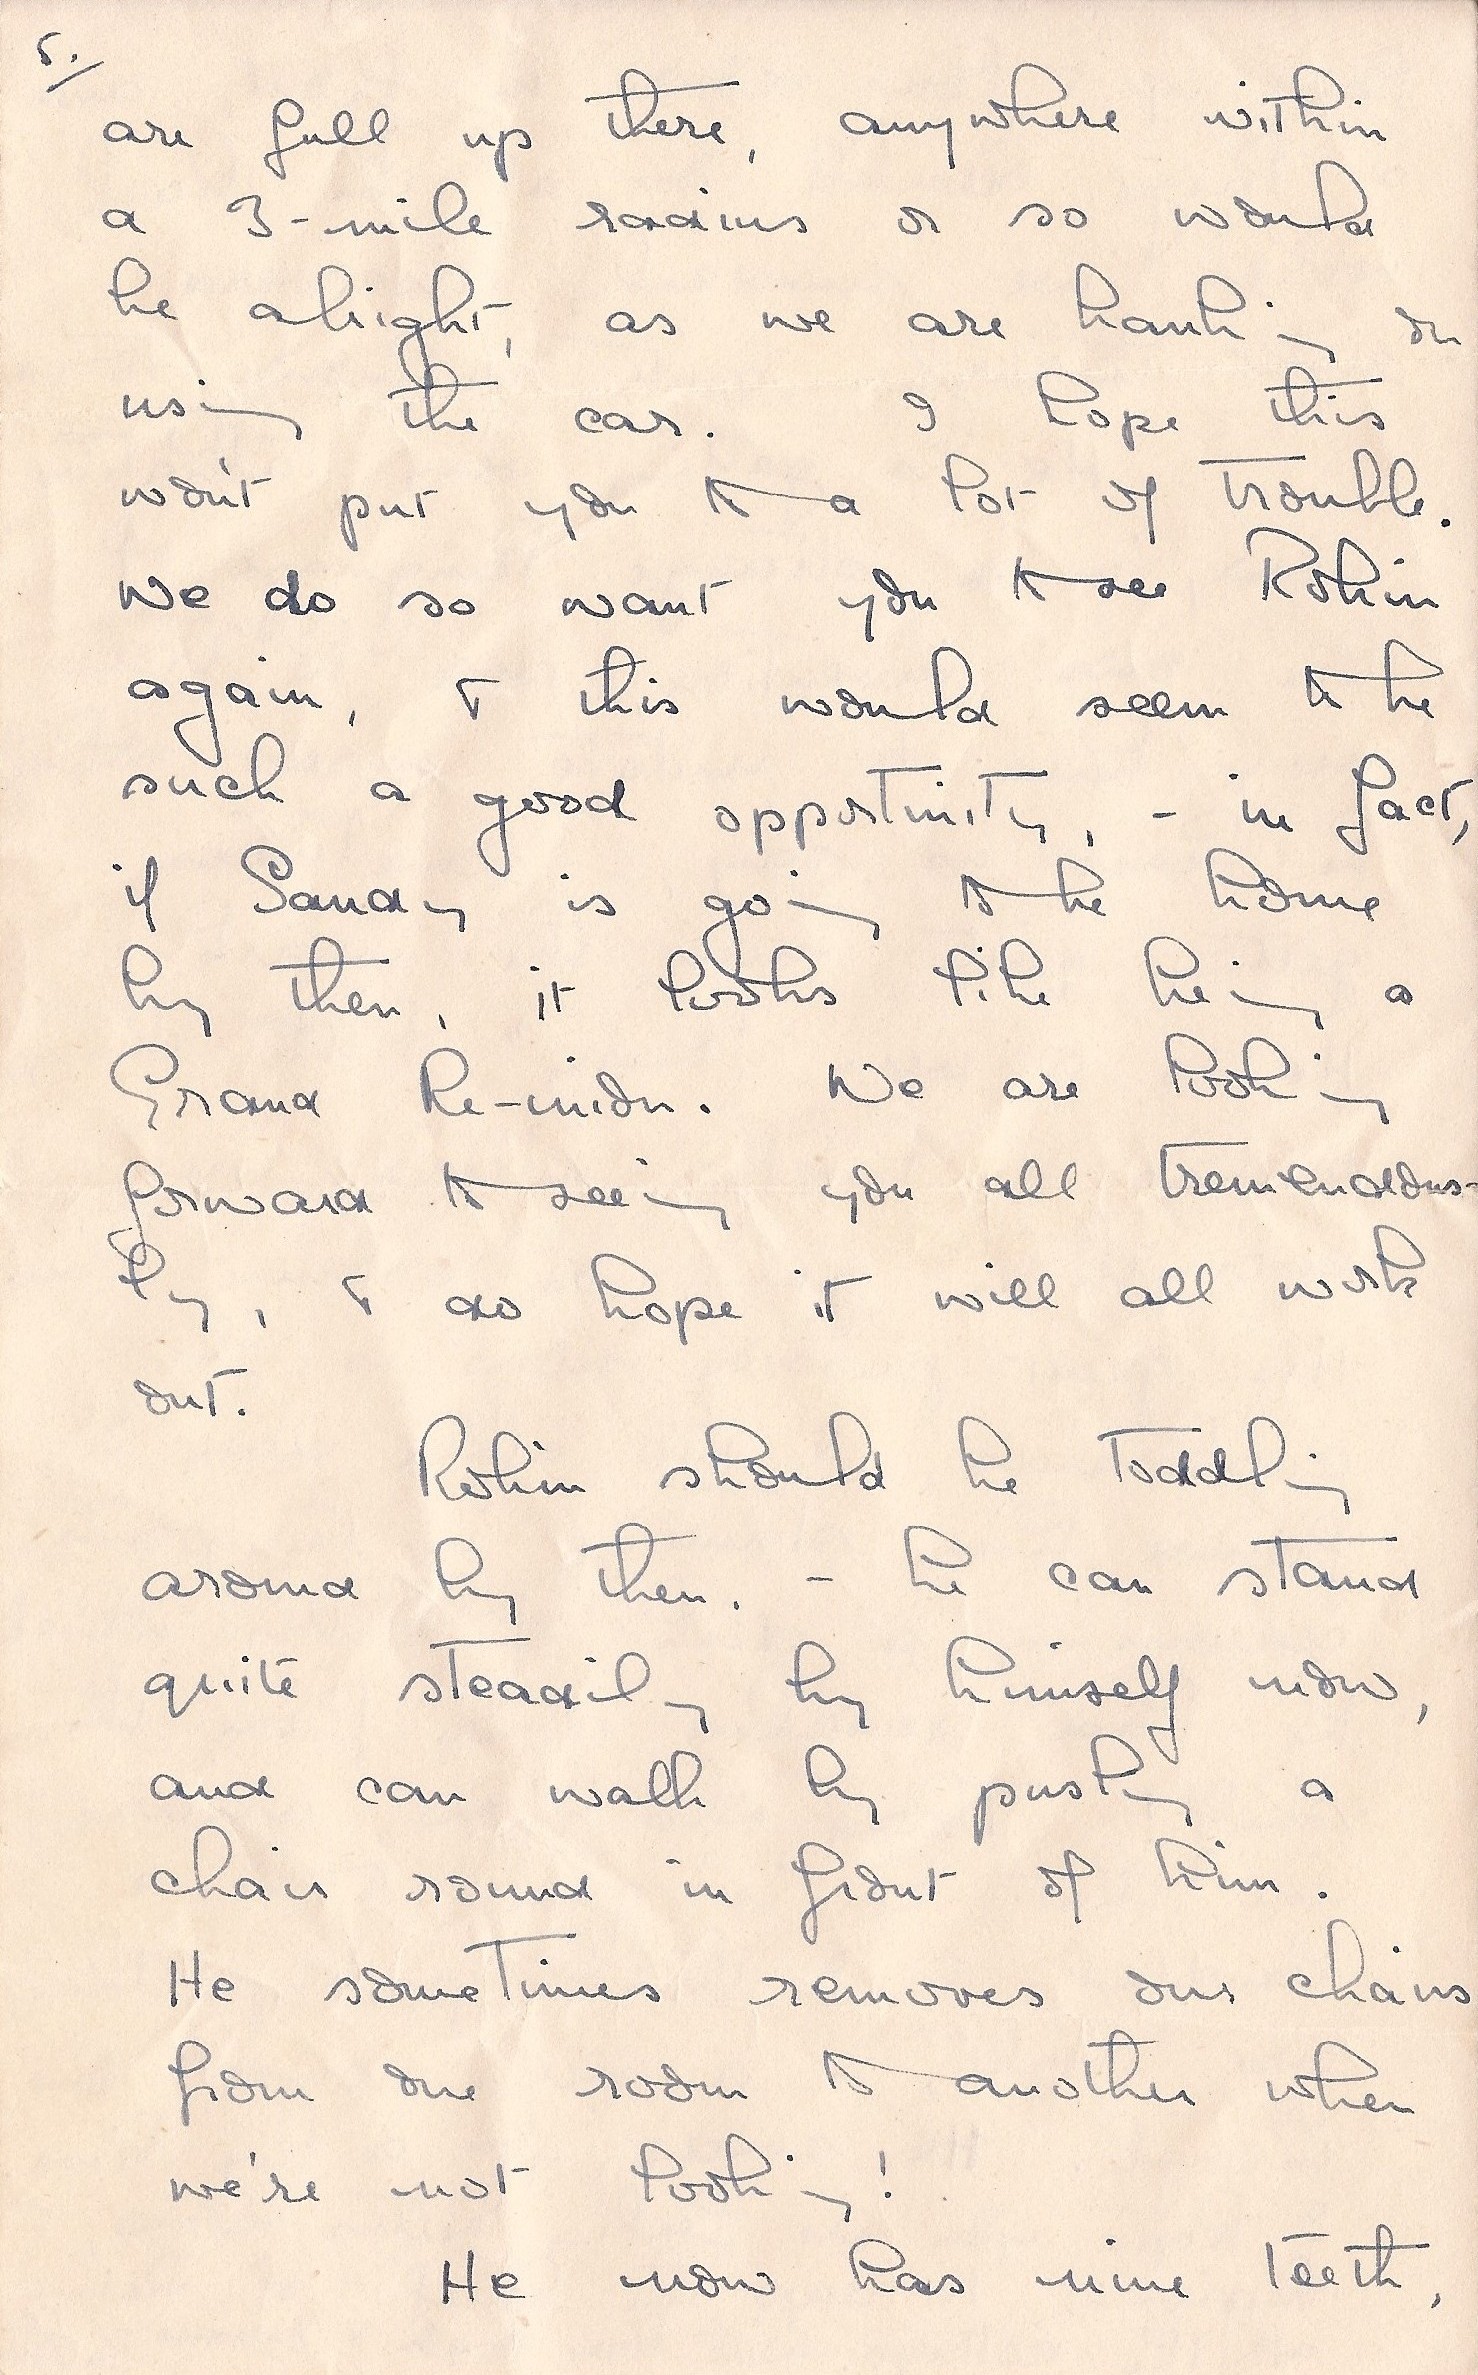 5.
are full up there, anywhere within
a 3-mile radius or so would
be alright, as we are banking on
using the car. I hope this
won't put you to a lot of trouble.
We do so want you to see Robin
again, & this would seem to be
such a good opportunity, - in fact,
if Sandy is going to be home
by then, it looks like being a
Grand Re-union. We are looking
forward to seeing you all tremendous-
ly, & do hope it will all work
out.
Robin should be toddling
around by then. - he can stand
quite steadily by himself now,
and can walk by pushing a
chair round in front of him.
He sometimes removes our chairs
from one room to another when
we're not looking!
He now has nine teeth,